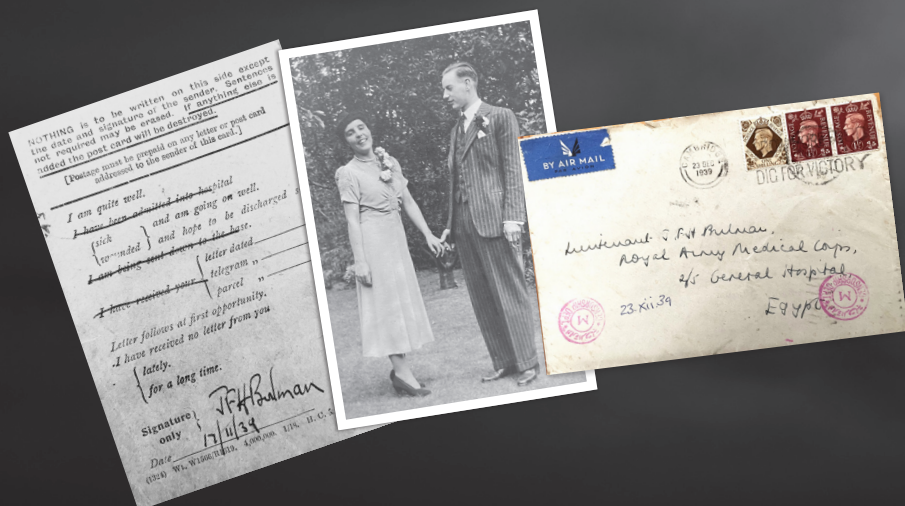 NOTHING is to be written on this side except
the date and signature of the sender. Sentences
not required may be erased. If anything else is
added the post card will be destroyed.
[Postage must be prepaid on any letter or post card
addressed to the sender of this card.]
I am quite well.
I have been admitted into hospital
{ sick } and am going on well.
{ wounded } and hope to be discharged
I am being sent down to the base.
I have received your { letter dated
telegram „
parcel „
Letter follows at first opportunity.
I have received no letter from you
{ lately.
{ for a long time.
Signature }
only
JFH Bulman
Date 12/11/39
4,000,000.
BY AIR MAIL
PAR AVION
23 DEC
1939
DIG FOR VICTORY
Lieutenant J.F.H. Bulman,
Royal Army Medical Corps,
2/5 General Hospital
23.xii.39
Egypt
M
M